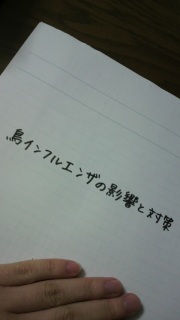 鳥インフルエンザの影響と対策